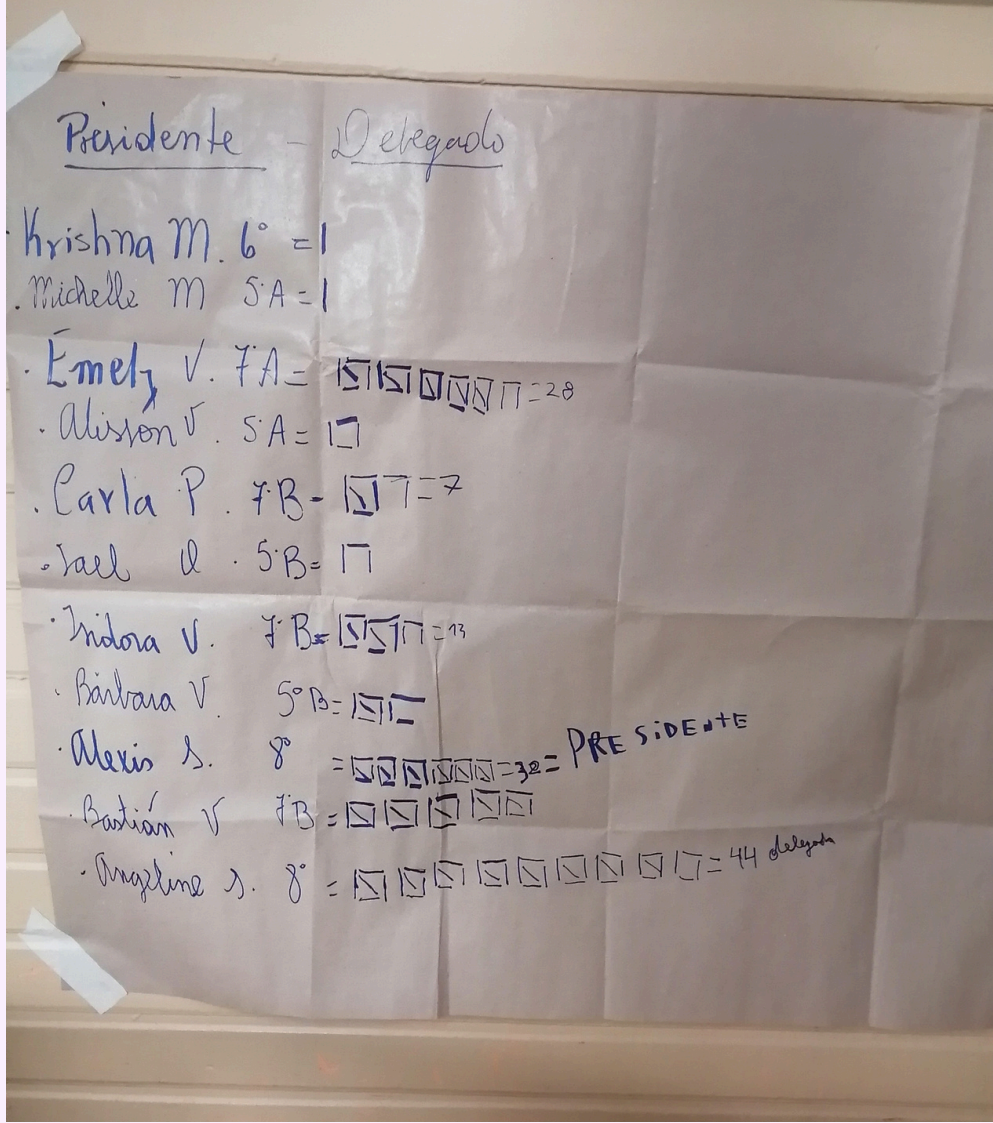 Presidente - Delegado
Krishna M. 6° = 1
. Michelle M 5·A = 1
. Emely V. 7·A = = 28
. Alisson V. 5·A =
. Carla P. 7·B - = 7
. Jael . 5·B =
. Isidora V. 7·B = = 13
. Bárbara V. 5° B =
. Alexis S. 8° = = 32 = PRESiDENtE
. Bastián V 7·B =
. Angeline S. 8° = = 44 delegada